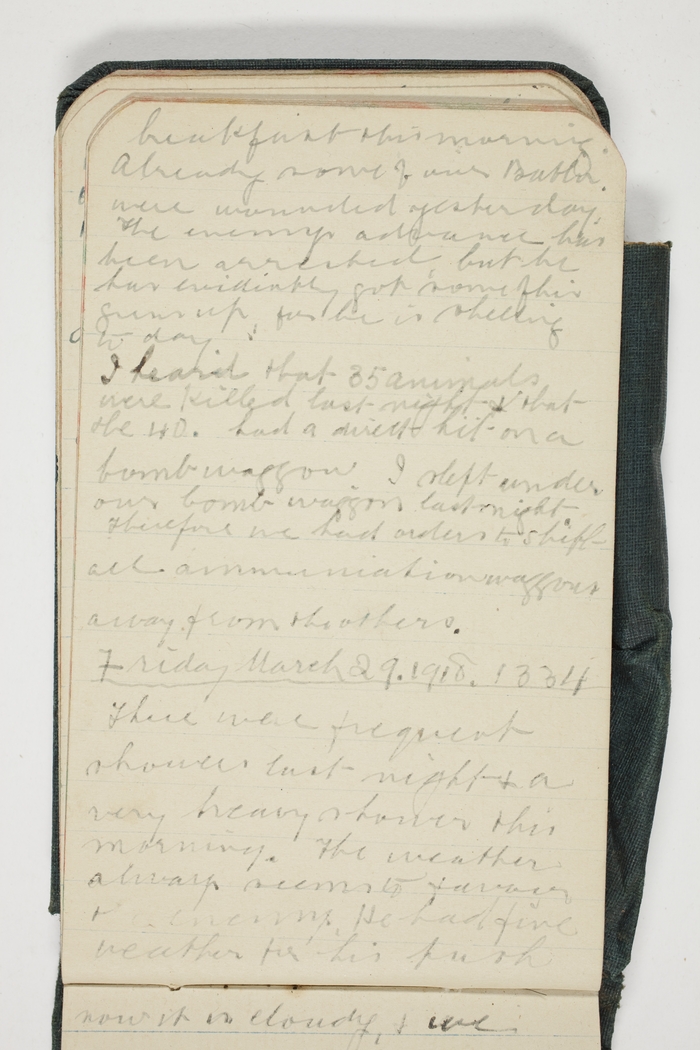 breakfast this morning.
Already some of our Battn.
were wounded yesterday.
The enemys advance has
been arrested, but he
has evidintly got some of his
guns up for he is shelling
to day.
I heard that 35 animals
were killed last night & that
the 40. had a direct hit on a
bomb waggon. I slept under
our bomb waggon last night.
Therefore we had orders to shift
all ammuniation waggons
away from the others.
Friday March 29. 1918. 1334
There were frequent
showers last night & a
very heavy shower this
morning. The weather
always seems to favour
the enemy. He had fine
weather for his push
now it is cloudy, & we